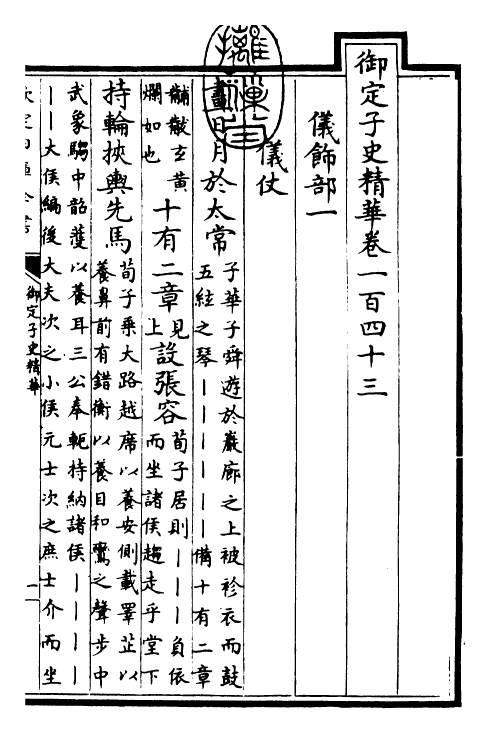 御定子史精華卷一百四十三
儀飾部一
儀仗
畫日月於太常
子華子舜遊於巖廊之上被袗衣而鼓
五絃之琴｜｜｜｜｜｜備十有二章
黼黻玄黄
爛如也
十有二章
見
上
設張容
荀子居則｜｜｜負依
而坐諸侯趨走乎堂下
持輪挾輿先馬
荀子乘大路越席以養安側載睪芷以
養鼻前有錯衡以養目和鸞之聲步中
武象騶中韶濩以養耳三公奉軛持納諸侯｜｜｜｜
｜｜大侯編後大夫次之小侯元士次之庶士介而坐
御定子史精華
一